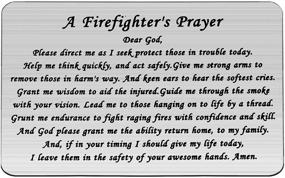 A Firefighter's Prayer
Dear God,
Please direct me as I seek protect those in trouble today.
Help me think quickly, and act safely.Give me strong arms to
remove those in harm's way. And keen ears to hear the softest cries.
Grant me wisdom to aid the injured.Guide me through the smoke
with your vision. Lead me to those hanging on to life by a thread.
Grant me endurance to fight raging fires with confidence and skill.
And God please grant me the ability return home, to my family.
And, if in your timing I should give my life today,
I leave them in the safety of your awesome hands. Amen.